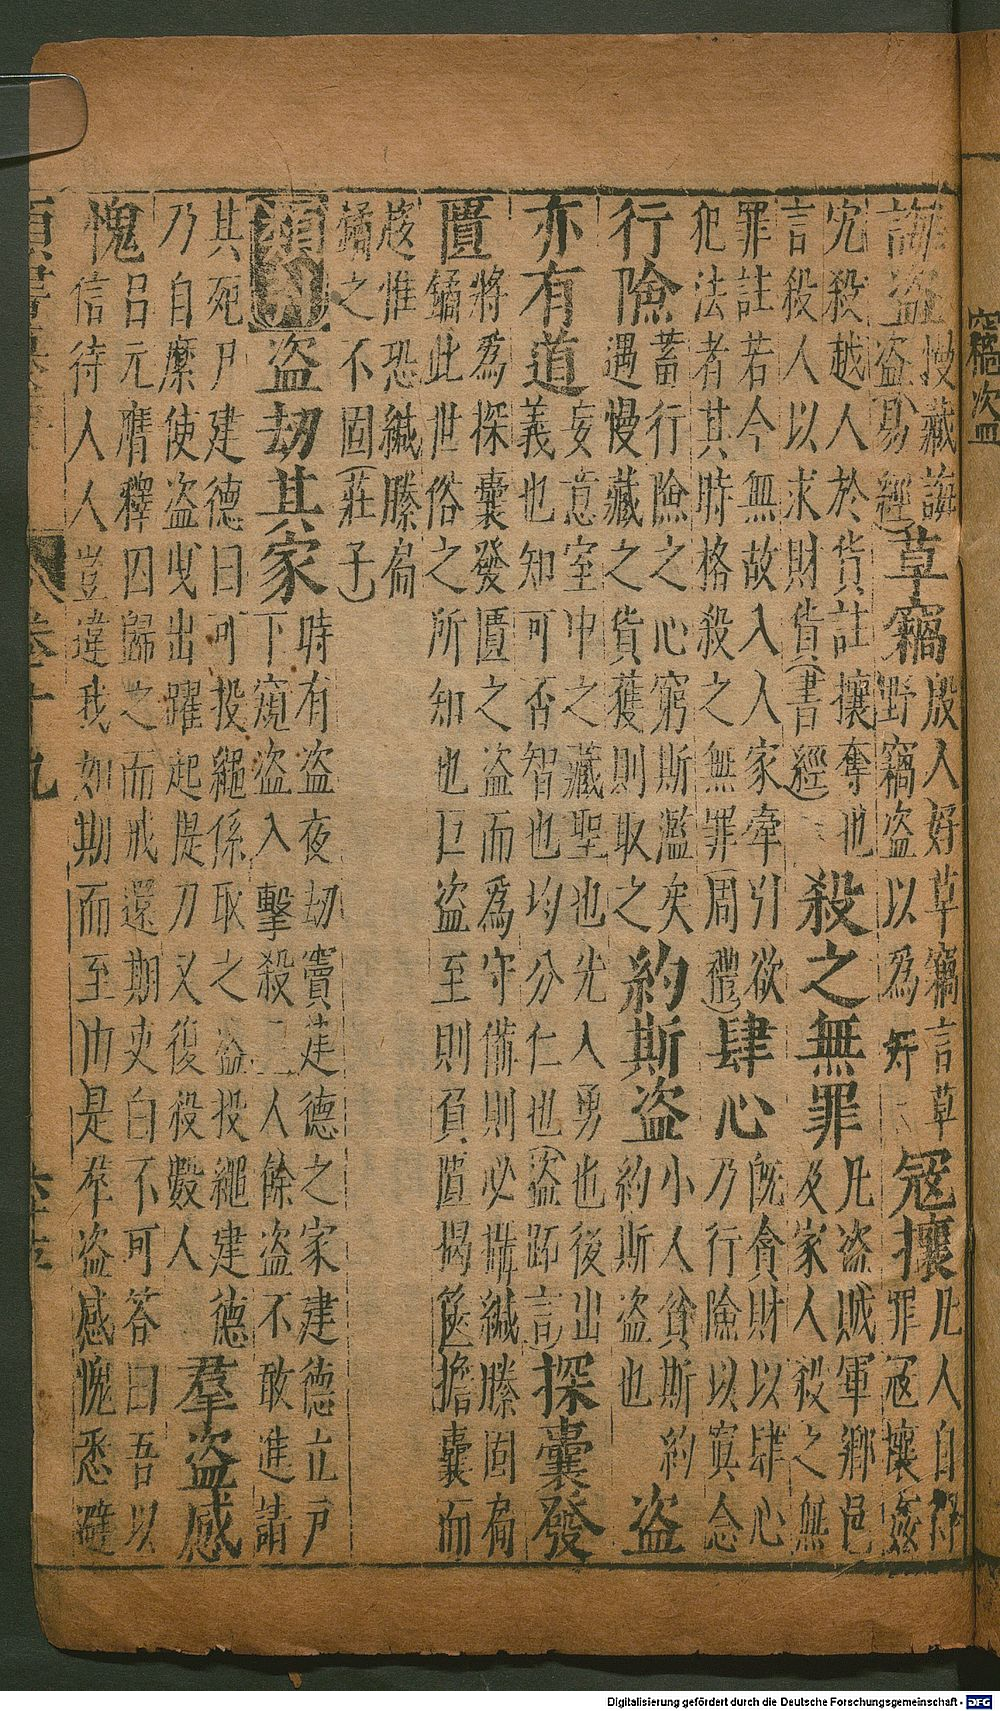 誨盜 慢藏誨
盜(易經) 草竊 殷人好草竊言草
野竊盜以為奸 冦攘 凡人自得
罪冦攘姦
宄殺越人於貨註攘奪也
言殺人以求財貨(書經) 殺之無罪 凡盜賊軍鄉邑
及家人殺之無
罪註若今無故入人家牽引欲
犯法者其時格殺之無罪周禮) 肆心 既貪財以肆心
乃行險以寞念
行險 蓄行險之心窮斯濫矣
遇慢藏之貨獲則取之 約斯盜 小人貧斯約
約斯盜也 盜
亦有道 妄意室中之藏聖也先入勇也後出
義也知可否智也均分仁也(盜跖言) 探囊發
匱 將為探囊發匱之盜而為守備則必攝緘縢固扃
鐍此世俗之所知也巨盜至則負匱揭篋擔囊而
趍惟恐緘縢扃
鐍之不固(莊子)
盜劫其家 時有盜夜劫竇建德之家建德立戶
下窺盜入擊殺三人餘盜不敢進請
其死尸建德曰可投繩係取之盜投繩建德
乃自縻使盜曳出躍起提刀又復殺數人 羣盜感
愧 呂元膺釋囚歸之而戒還期吏白不可答曰吾以
信待人人豈違我如期而至由是羣盜感愧悉避
卷十九
Digitalisierung gefördert durch die Deutsche Forschungsgemeinschaft - DFG